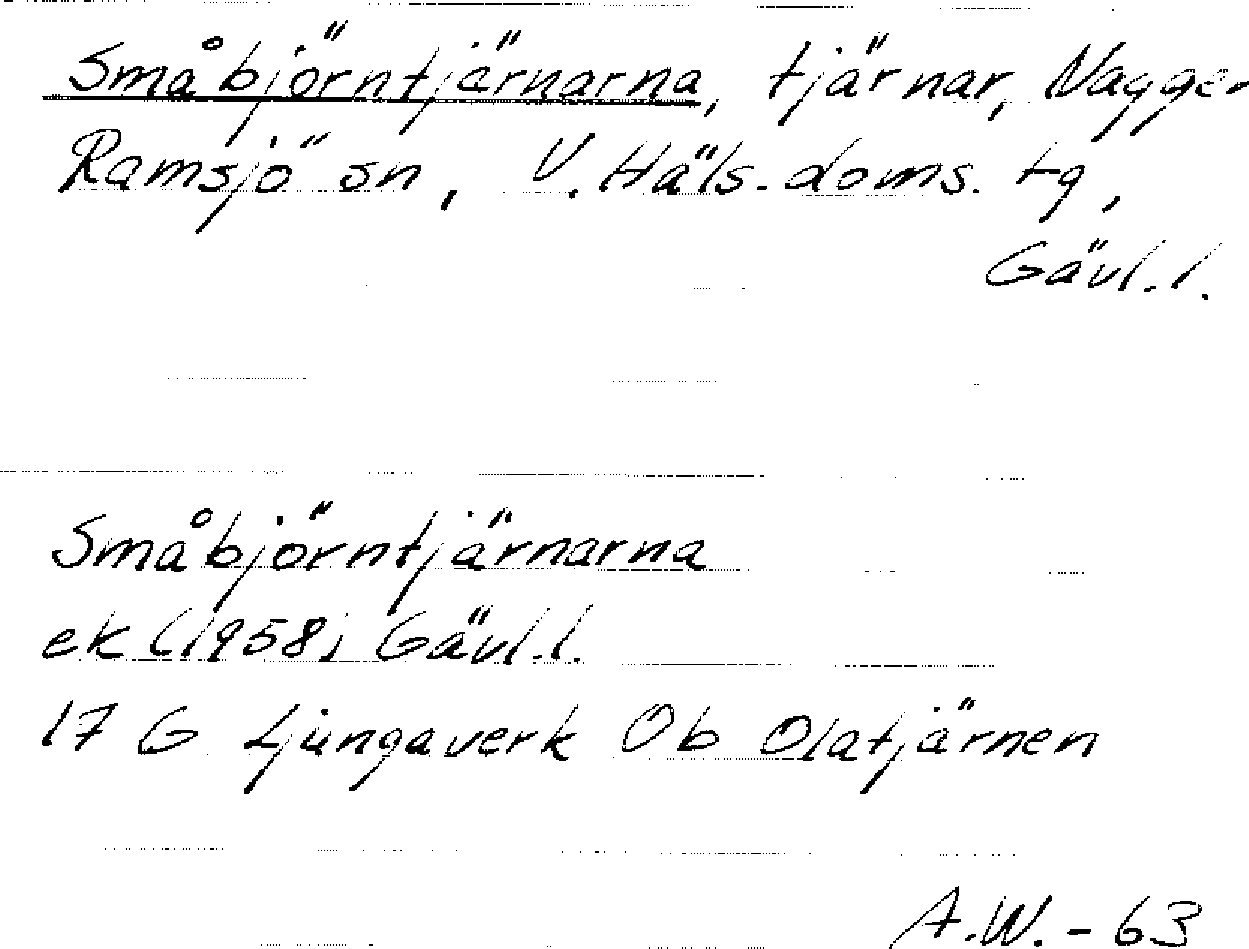 Småbjörntjärnarna, tjärnar, Naggen
Ramsjö sn, V. Häls. doms. tg,
Gävl.l.
Småbjörntjärnarna
ek (1958) Gävl.l.
17 G Ljungaverk Ob Olatjärnen
A.W.-63